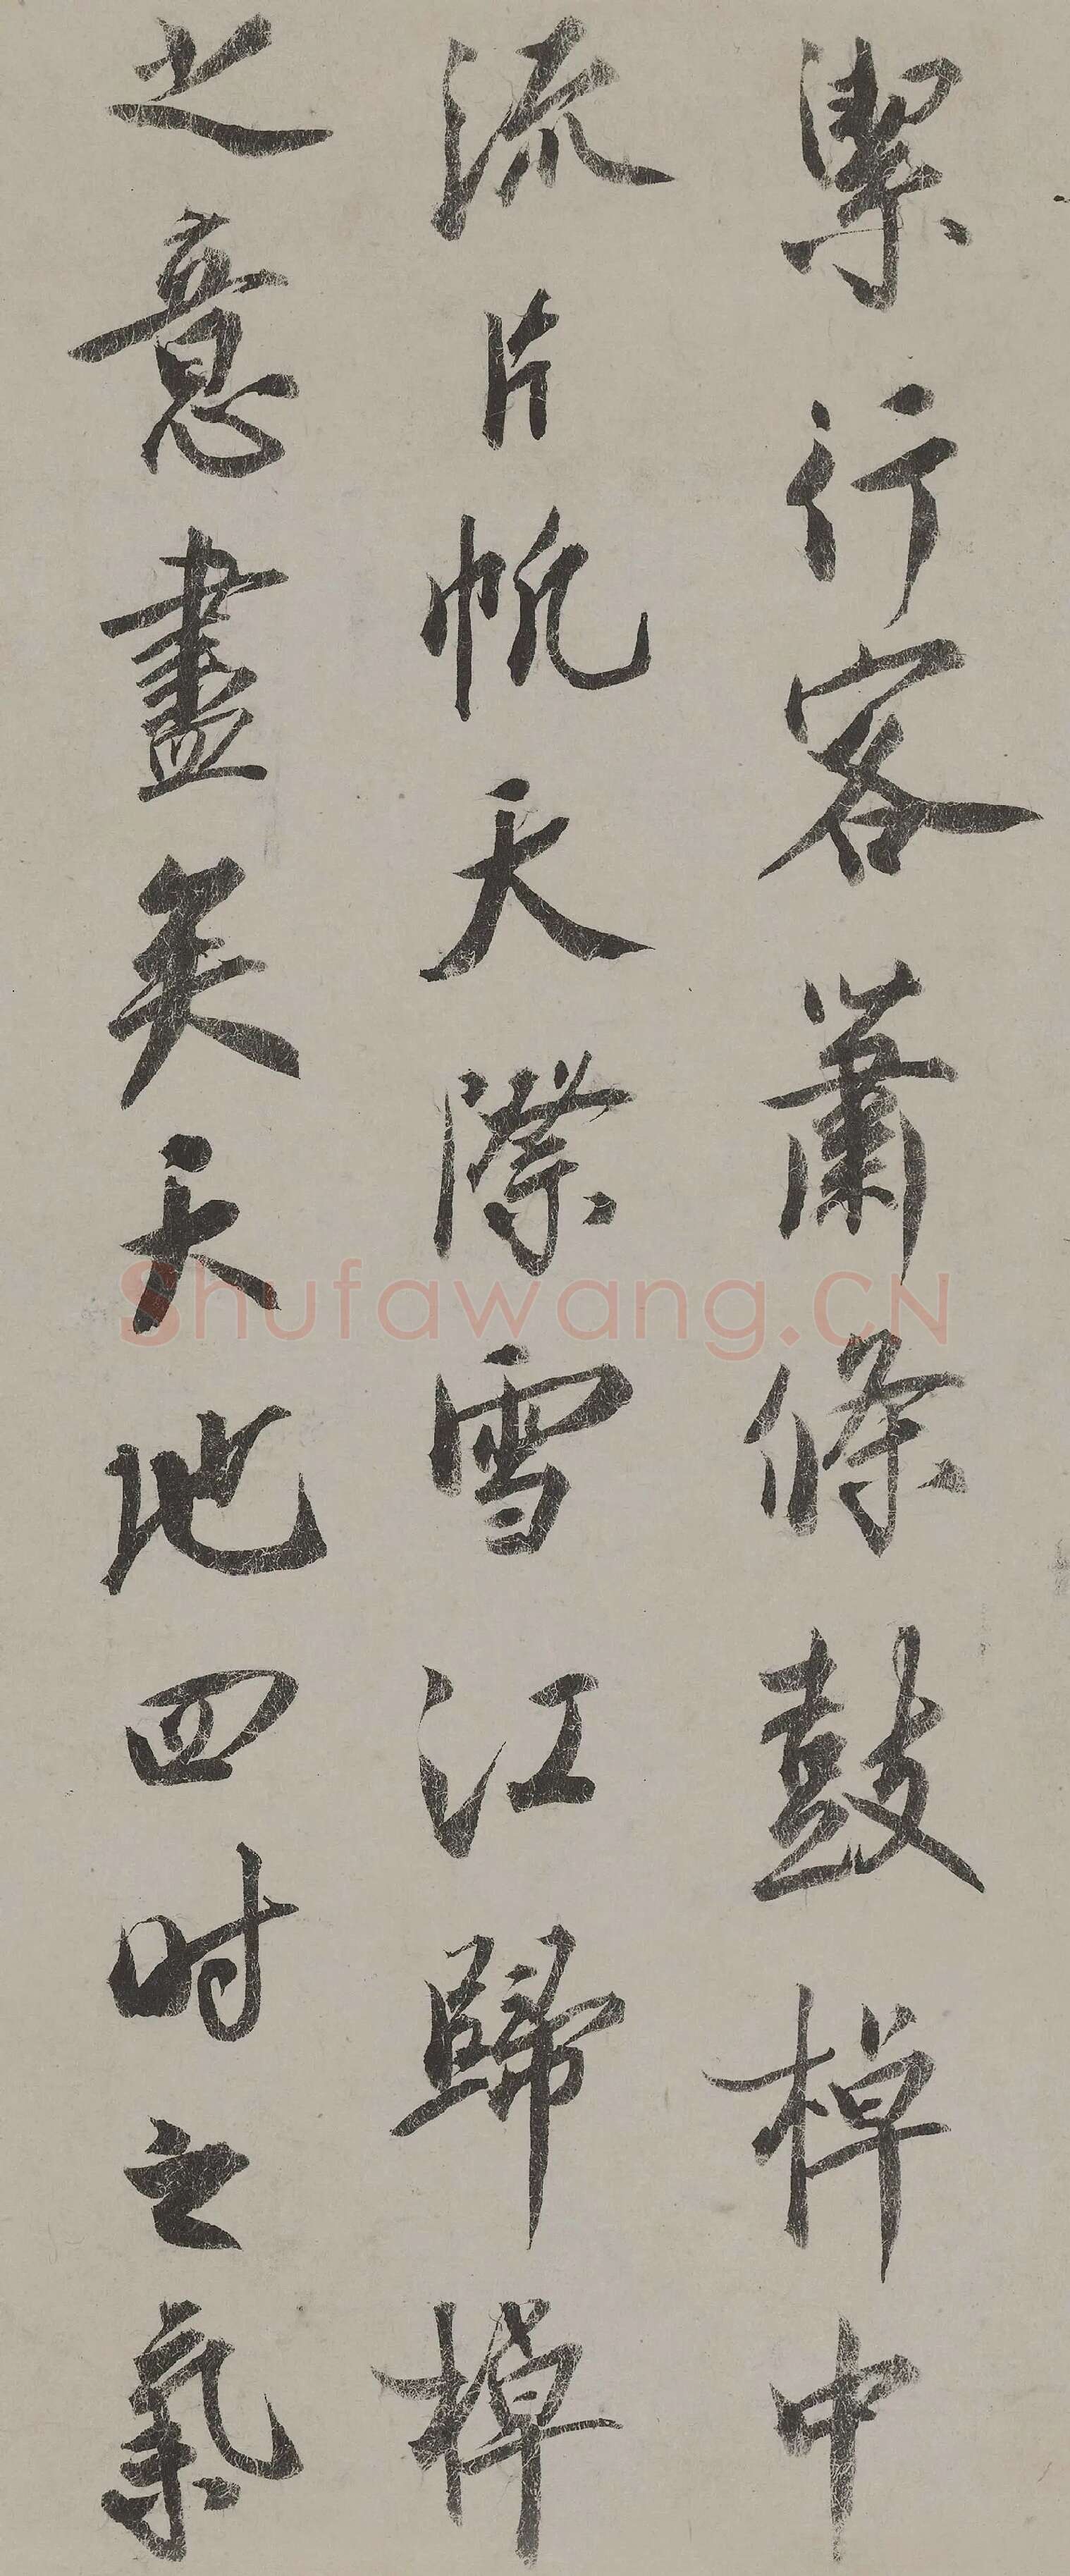 潔行客蕭條鼓棹中
流片帆天際雪江歸棹
之意盡矣天地四時之氣
Shufawang.CN